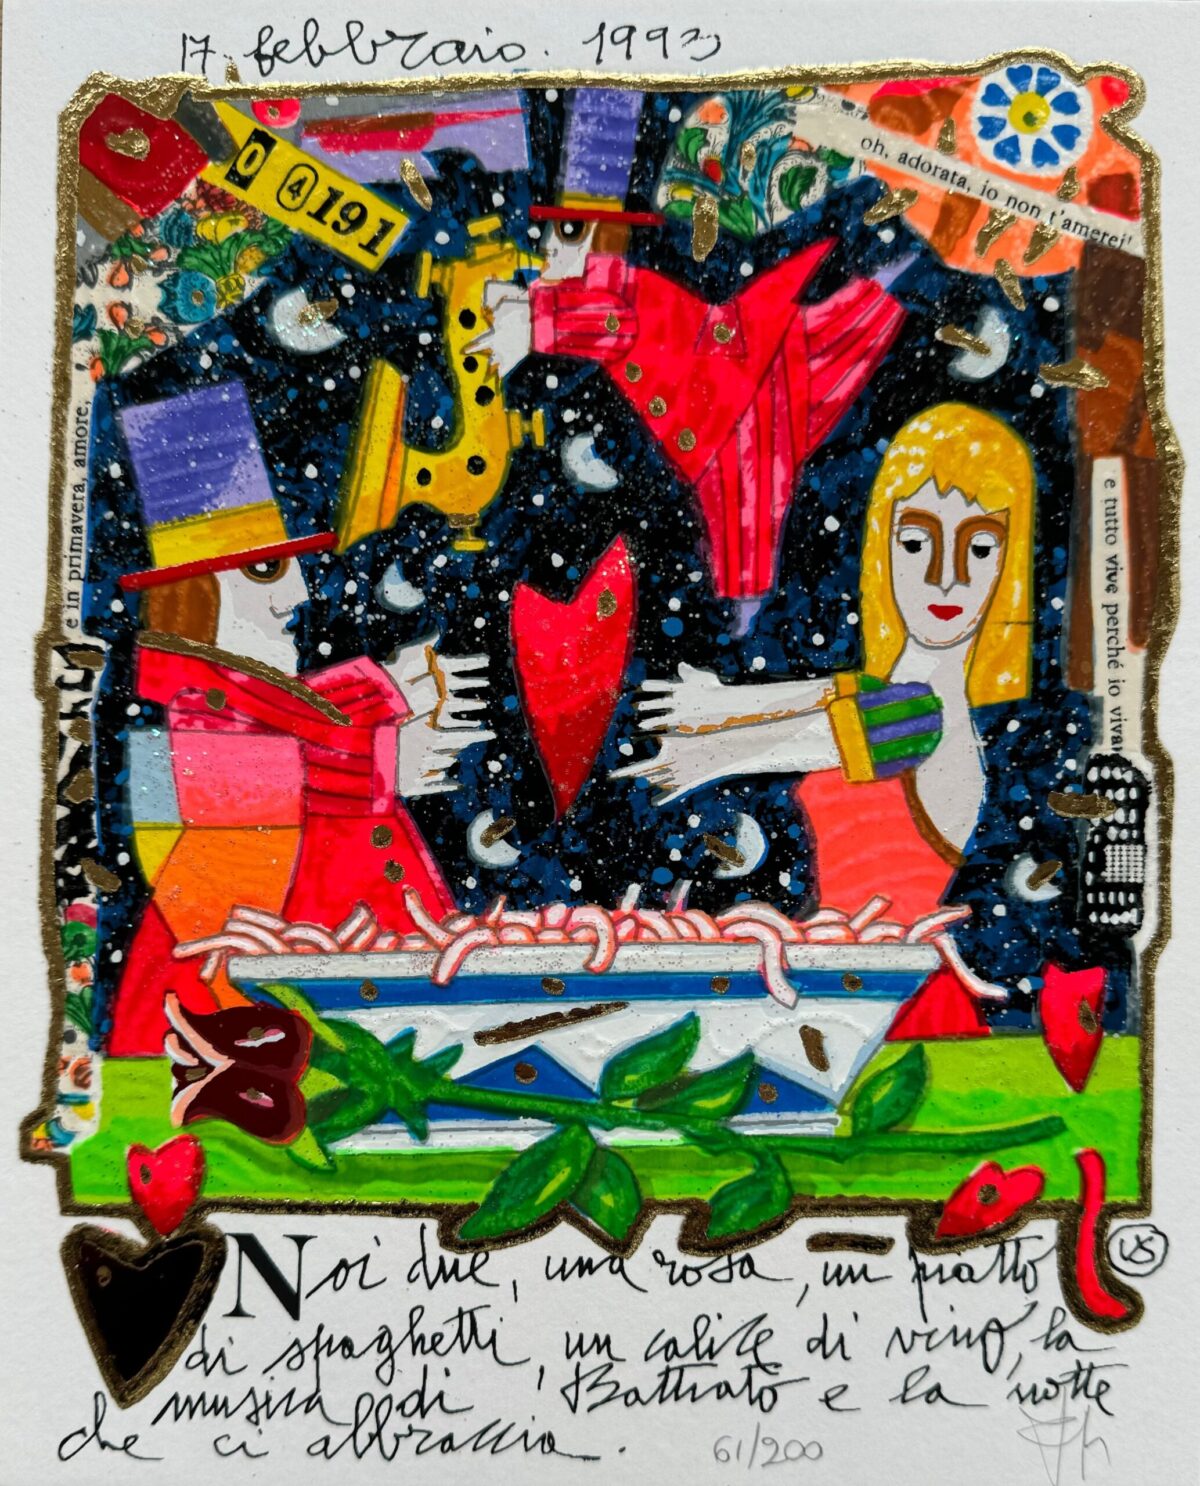 17. febbraio. 1993
0 4 191
oh, adorata, io non t'amerei!
e in primavera, amore,
e tutto vive perché io vivar
Noi due, una rosa, un piatto
di spaghetti, un calice di vino, la
musica di Battiato e la notte
che ci abbraccia.
61/200